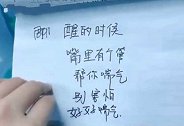 醒的时候
嘴里有个管
帮你喘气
别害怕
好好喘气